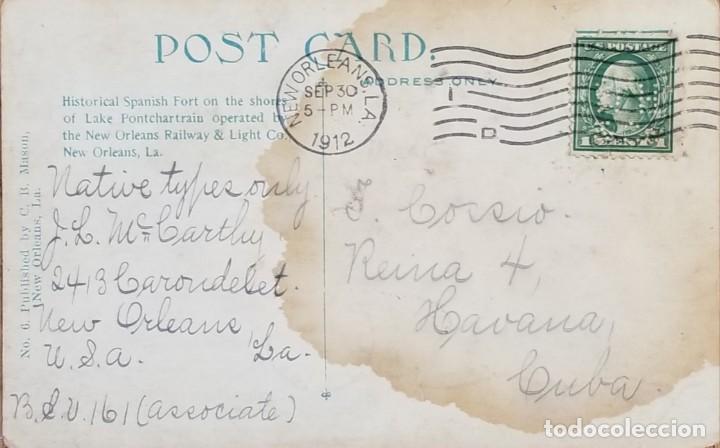 POST CARD.
ADDRESS ONLY
Historical Spanish Fort on the shores
of Lake Pontchartrain operated by
the New Orleans Railway & Light Co.
New Orleans, La.
No. 6. Published by C. B. Mason,
New Orleans, La.
NEW ORLEANS, LA.
SEP 30
5-PM
1912
1
D
U.S. POSTAGE
Native types only
J. L. McCarthy
2413 Carondelet.
New Orleans,
U.S.a. La.
B.S.V. 161 (associate)
Cossio.
Reina 4,
Havana,
Cuba.
todocoleccion